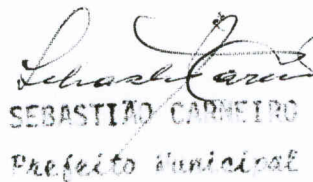 SEBASTIÃO CARNEIRO
Prefeito Municipal